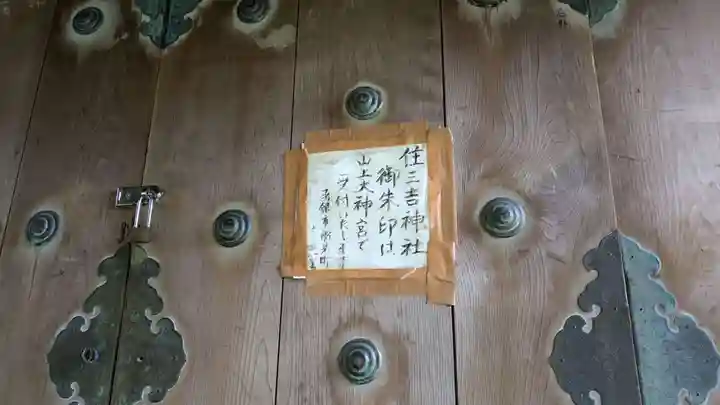 住三吉神社
御朱印は
山上大神宮で
受付いたします